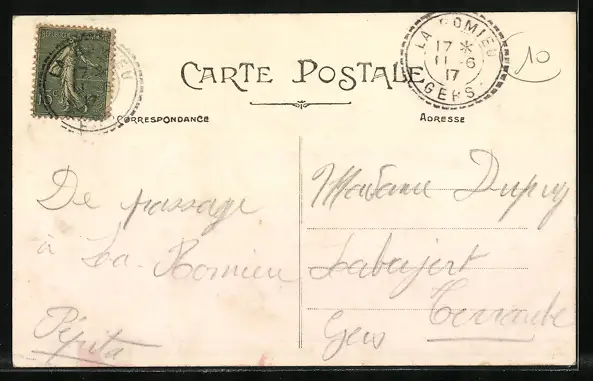 RÉPUBLIQUE FRANÇAISE
15c
LA ROMIEU
17 *
11 -6
17
GERS
10
CARTE POSTALE
CORRESPONDANCE
ADRESSE
De passage
à La Romieu
Pépita
Madame Dupuy
Gers Terraube